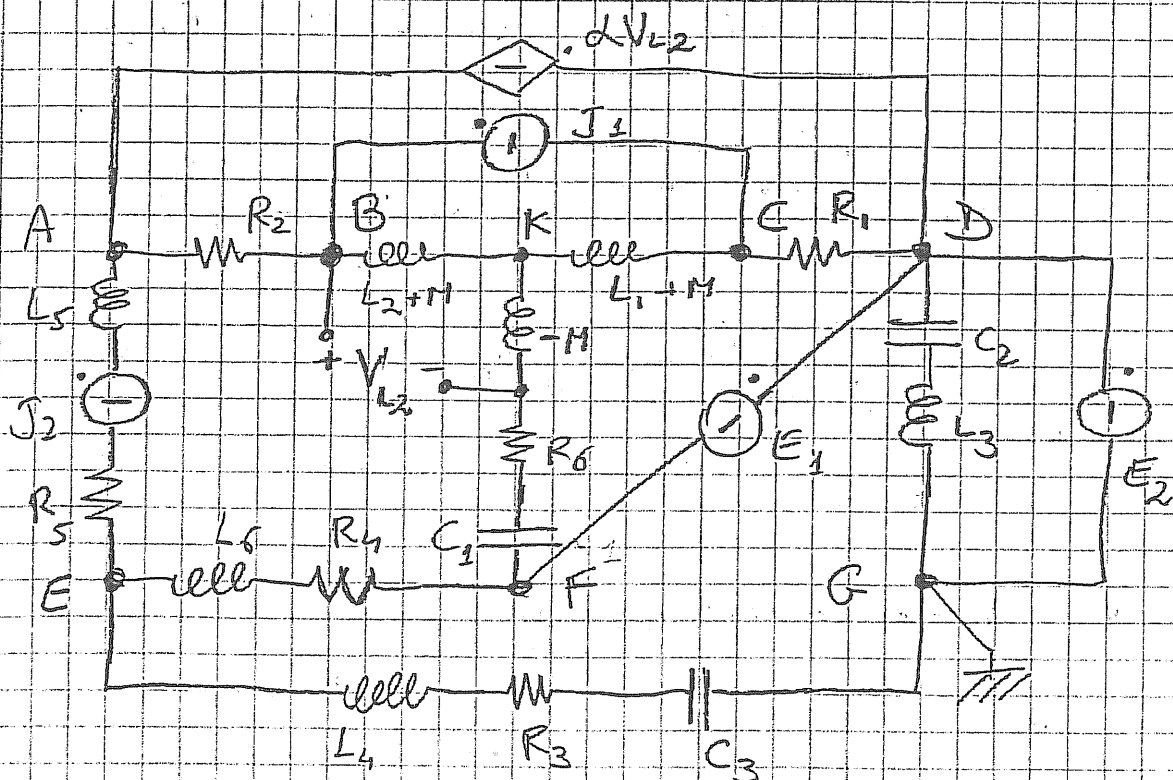 αV_L2
J1
A
R2
B
K
C
R1
D
L5
L2+M
L1+M
-M
C2
+ V_L2 -
J2
R6
E1
L3
E2
R5
L6
R4
C1
E
F
G
L4
R3
C3